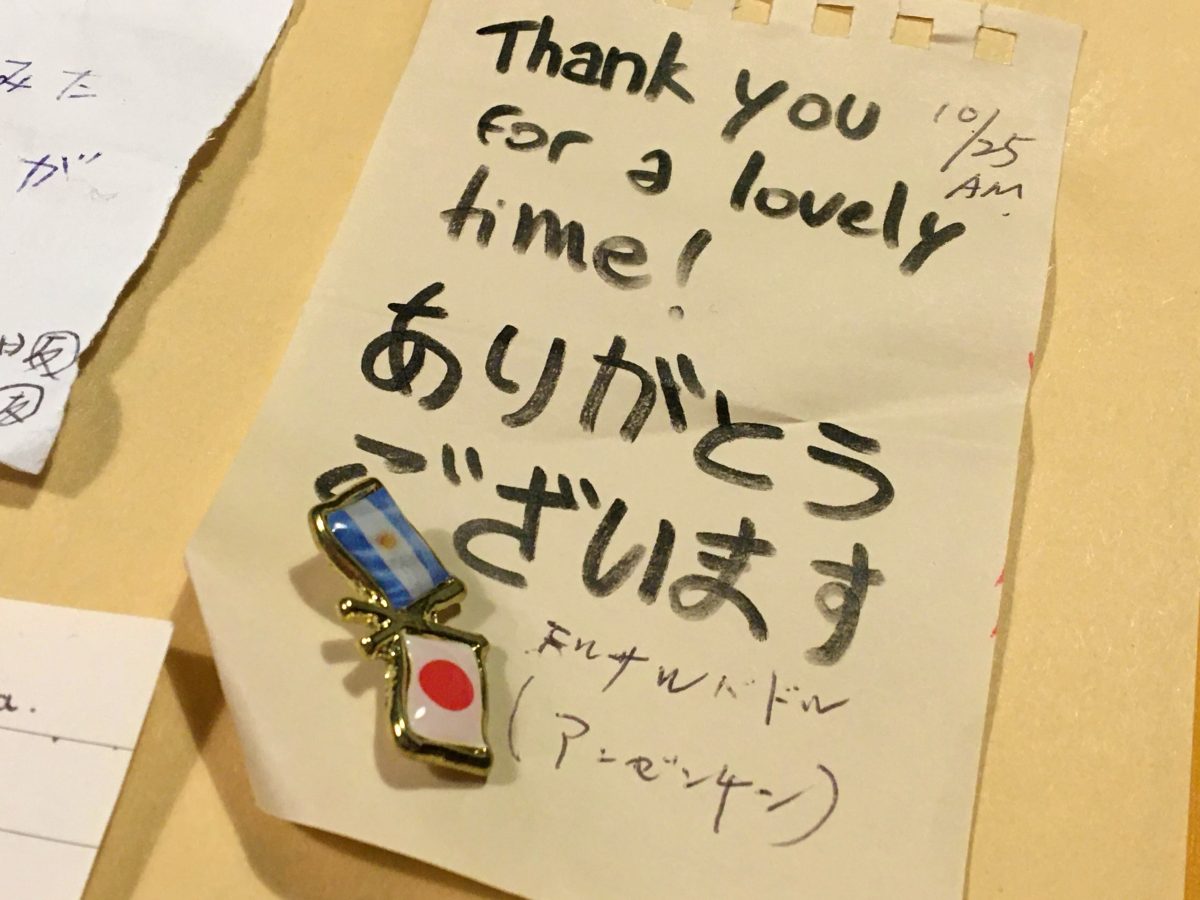 みた
が
a.
Thank you
for a lovely
time!
10/25
AM.
ありがとう
ございます
エルサルバドル
(アンゼンチン)